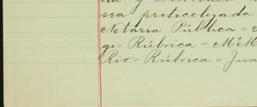 ssa protocolizada
Notaria Pública -
go - Rúbrica - M. M
Rio - Rúbrica - Jua